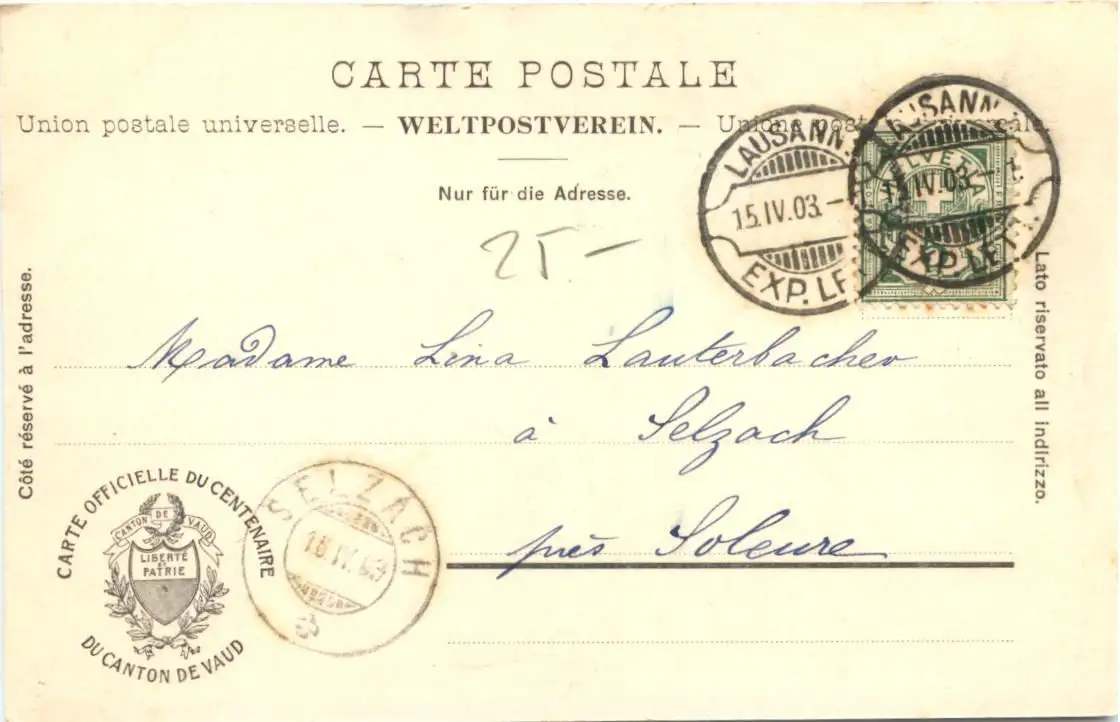 CARTE POSTALE
Union postale universelle. — WELTPOSTVEREIN. — Unione postale
Nur für die Adresse.
LAUSANN
15.IV.03.-
EXP. LE
LAUSANN
IV.03-1.
EXP. LETT
HELVETIA
25-
Côté réservé à l'adresse.
Lato riservato all indirizzo.
Madame Lina Lauterbacher
à Selzach
près Soleure
CARTE OFFICIELLE DU CENTENAIRE
DU CANTON DE VAUD
CANTON DE VAUD
LIBERTÉ
ET
PATRIE
SELZACH
IV.03